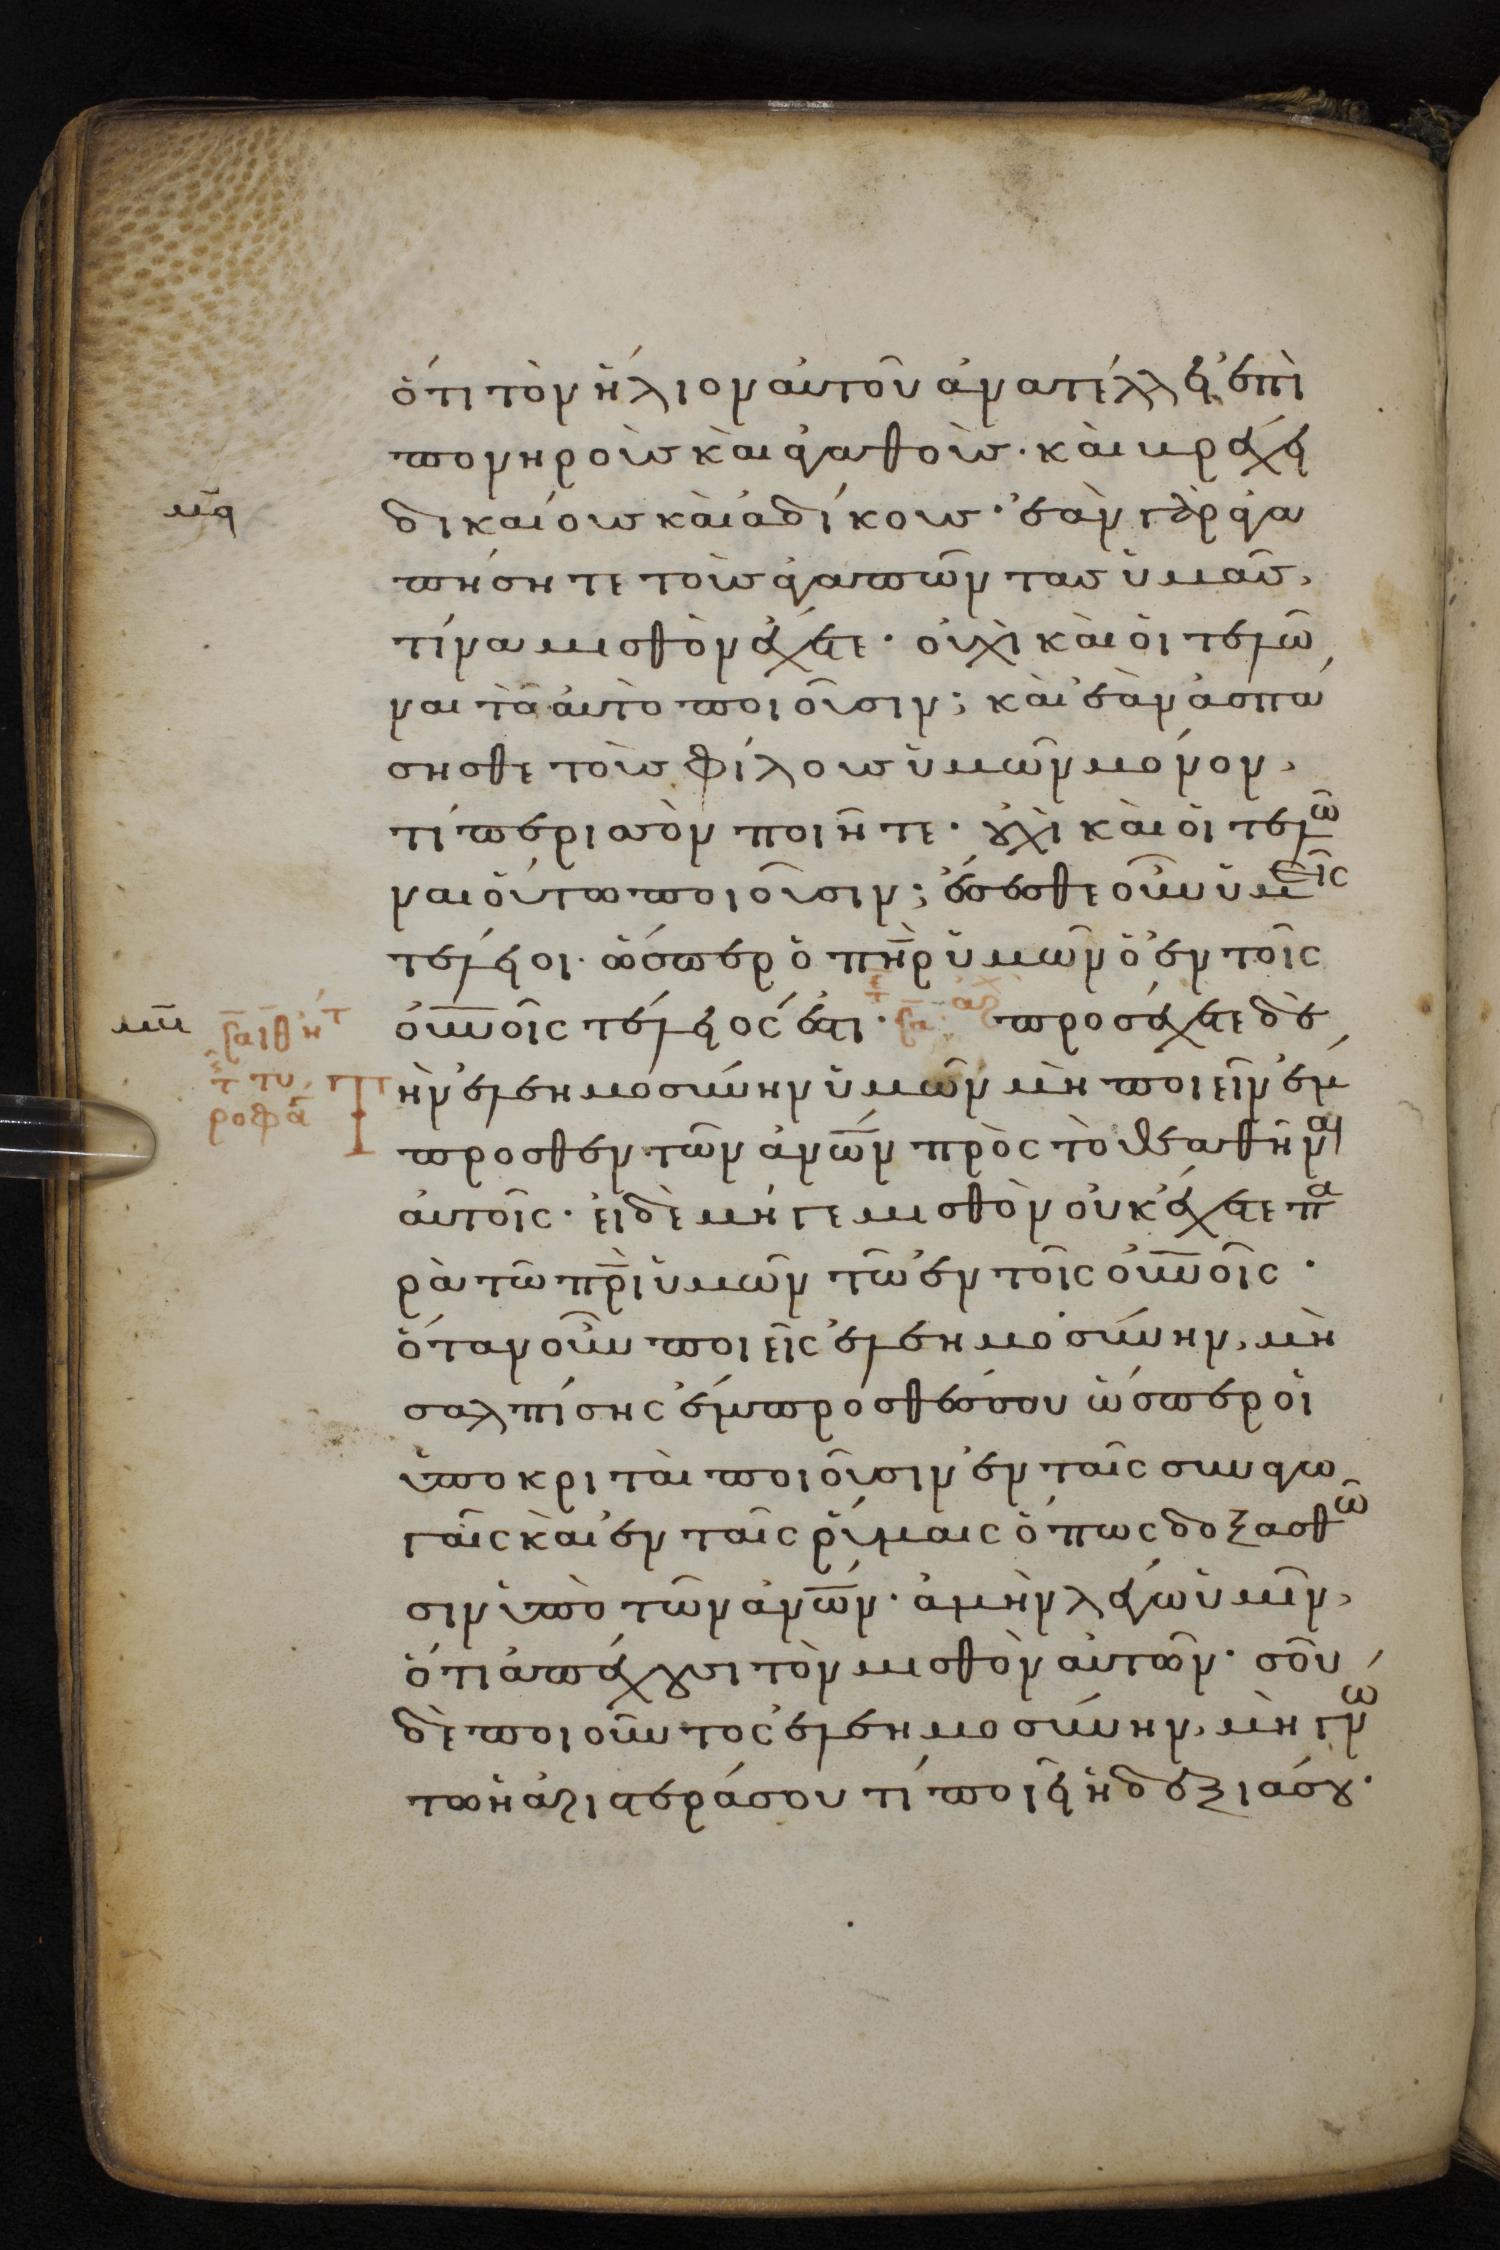 ὅτι τὸν ἥλιον αὐτοῦ ἀνατέλλει ἐπὶ
πονηροὺς καὶ ἀγαθοὺς· καὶ βρέχει
μα δικαίους καὶ ἀδίκους· ἐὰν γὰρ ἀγα
πήσητε τοὺς ἀγαπῶντας ὑμᾶς,
τίνα μισθὸν ἔχετε· οὐχὶ καὶ οἱ τελῶ
ναι τὸ αὐτὸ ποιοῦσιν; καὶ ἐὰν ἀσπά
σησθε τοὺς φίλους ὑμῶν μόνον,
τί περισσὸν ποιῆτε· οὐχὶ καὶ οἱ τελῶ
ναι οὕτω ποιοῦσιν; ἔσεσθε οὖν ὑμεῖς
τέλειοι· ὥσπερ ὁ πηρ ὑμῶν ὁ ἐν τοῖς
μβ οὐνοῖς τέλειός ἐστι· προσέχετε δὲ
Τὴν ἐλεημοσύνην ὑμῶν μὴ ποιεῖν ἔμ
προσθεν τῶν ἀνων πρὸς τὸ θεαθῆναι
αὐτοῖς· εἰ δὲ μήγε μισθὸν οὐκ ἔχετε πα
ρὰ τῶ πρι ὑμῶν τῶ ἐν τοῖς οὐνοῖς·
ὅταν οὖν ποιεῖς ἐλεημοσύνην, μὴ
σαλπίσης ἔμπροσθέν σου ὥσπερ οἱ
ὑποκριταὶ ποιοῦσιν ἐν ταῖς συναγω
γαῖς καὶ ἐν ταῖς ῥύμαις ὅπως δοξασθῶ
σιν ὑπὸ τῶν ἀνων· ἀμὴν λέγω ὑμῖν,
ὅτι ἀπέχουσι τὸν μισθὸν αὐτῶν· σοῦ
δὲ ποιοῦντος ἐλεημοσύνην, μὴ γνώ
τω ἡ ἀριστερά σου τί ποιεῖ ἡ δεξιά σου·